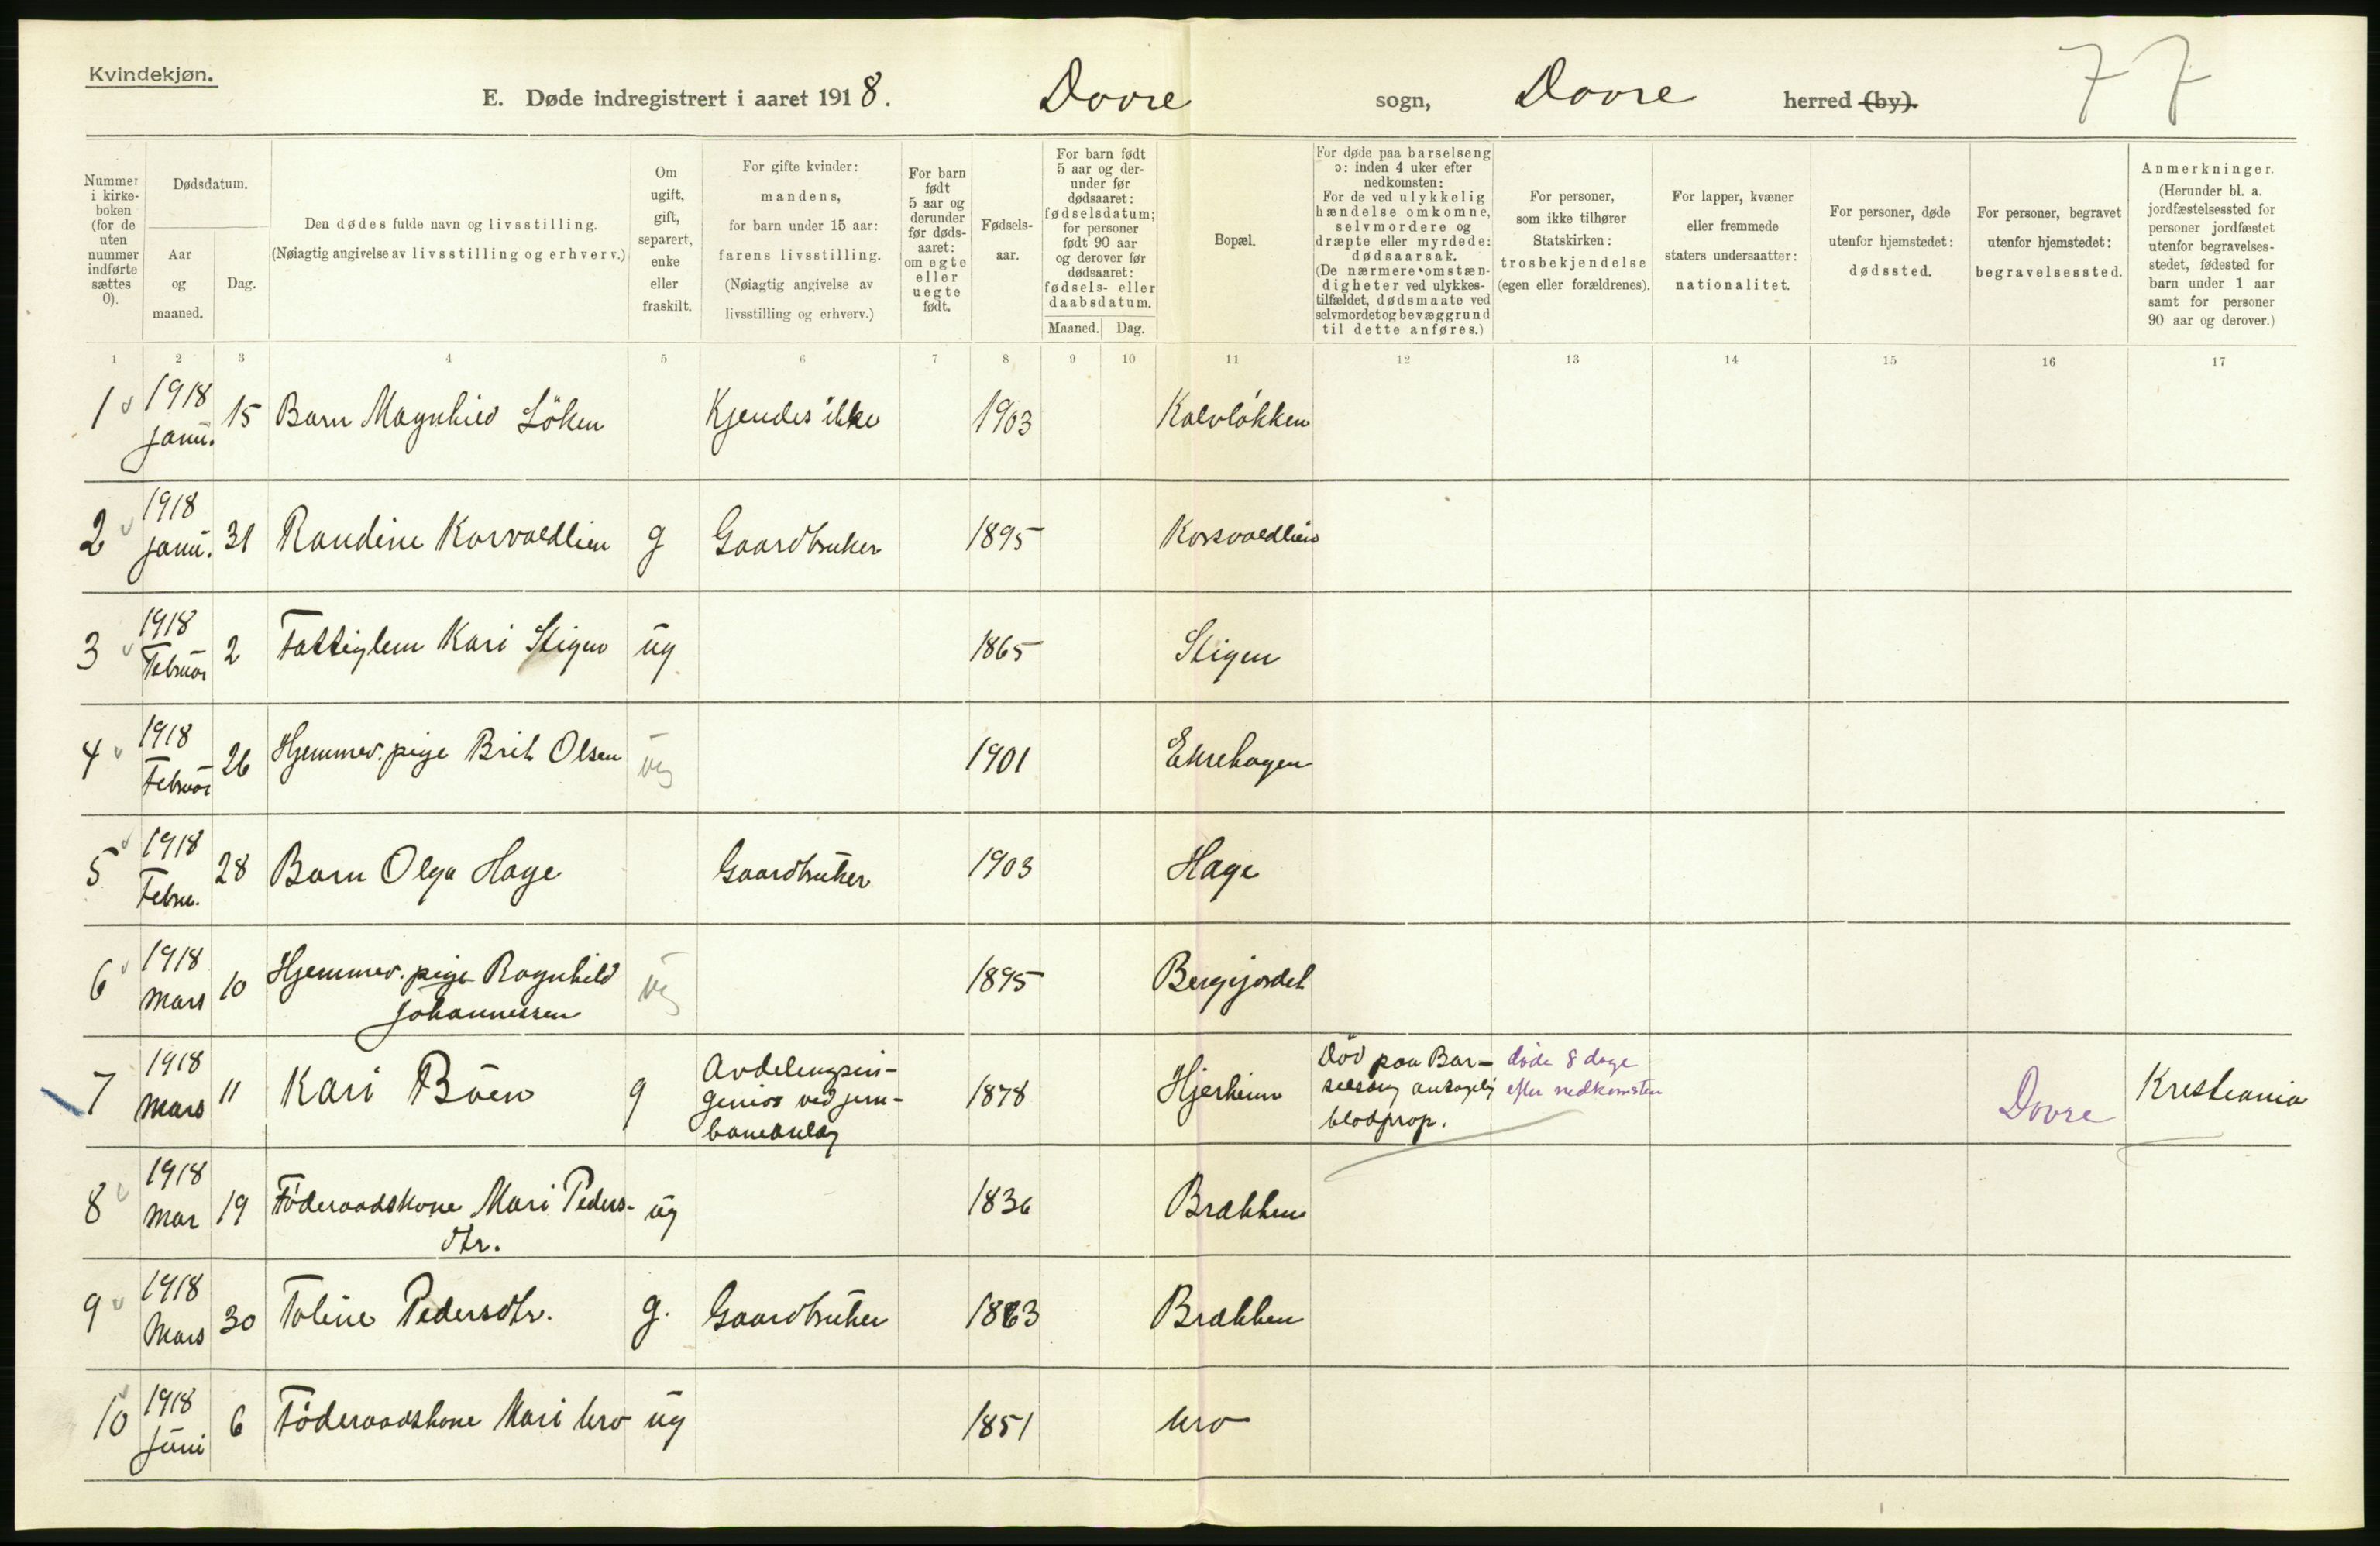 Kvindekjøn.
E. Døde indregistrert i aaret 1918. Dovre sogn, Dovre herred (by). 77
Nummer i kirkeboken (for de uten nummer indførte sættes 0).
Dødsdatum.
Aar og maaned.
Dag.
Den dødes fulde navn og livsstilling.
(Nøiagtig angivelse av livsstilling og erhverv.)
Om ugift, gift, separert, enke eller fraskilt.
For gifte kvinder: mandens, for barn under 15 aar: farens livsstilling. (Nøiagtig angivelse av livsstilling og erhverv.)
For barn født 5 aar og derunder før dødsaaret: om egte eller uegte født.
Fødselsaar.
For barn født 5 aar og derunder før dødsaaret: fødselsdatum; for personer født 90 aar og derover før dødsaaret: fødsels- eller daabsdatum.
Maaned. Dag.
Bopæl.
For døde paa barselseng ɔ: inden 4 uker efter nedkomsten: For de ved ulykkelig hændelse omkomne, selvmordere og dræpte eller myrdede: dødsaarsak. (De nærmere omstændigheter ved ulykkestilfældet, dødsmaate ved selvmordet og bevæggrund til dette anføres.)
For personer, som ikke tilhører Statskirken: trosbekjendelse (egen eller forældrenes).
For lapper, kvæner eller fremmede staters undersaatter: nationalitet.
For personer, døde utenfor hjemstedet: dødssted.
For personer, begravet utenfor hjemstedet: begravelsessted.
Anmerkninger. (Herunder bl. a. jordfæstelsessted for personer jordfæstet utenfor begravelsesstedet, fødested for barn under 1 aar samt for personer 90 aar og derover.)
1 2 3 4 5 6 7 8 9 10 11 12 13 14 15 16 17
1 1918 Janu. 15 Barn Magnhild Löken Kjendes ikke 1903 Kalvløkken
2 1918 Janu. 31 Randine Korsvoldlien g Gaardbruker 1895 Korsvoldlien
3 1918 Februar 2 Fattiglem Kari Stigen ug 1865 Stigen
4 1918 Februar 26 Hjemmev. pige Brit Olsen ug 1901 Ekrehagen
5 1918 Febru. 28 Barn Olga Hage Gaardbruker 1903 Hage
6 1918 Mars 10 Hjemmev. pige Ragnhild Johannessen ug 1895 Bergejordet
7 1918 Mars 11 Kari Böen g Avdelingsingeniør ved jernbaneanlæg 1878 Hjerkinn Död paa Barselseng antagelig blodprop. døde 8 dage efter nedkomsten Dovre Kristiania
8 1918 Mar 19 Föderaadskone Mari Pedersdtr. ug 1836 Brækken
9 1918 Mars 30 Toline Pedersdtr. g. Gaardbruker 1863 Brækken
10 1918 Juni 6 Föderaadskone Mari Uro ug 1851 Uro